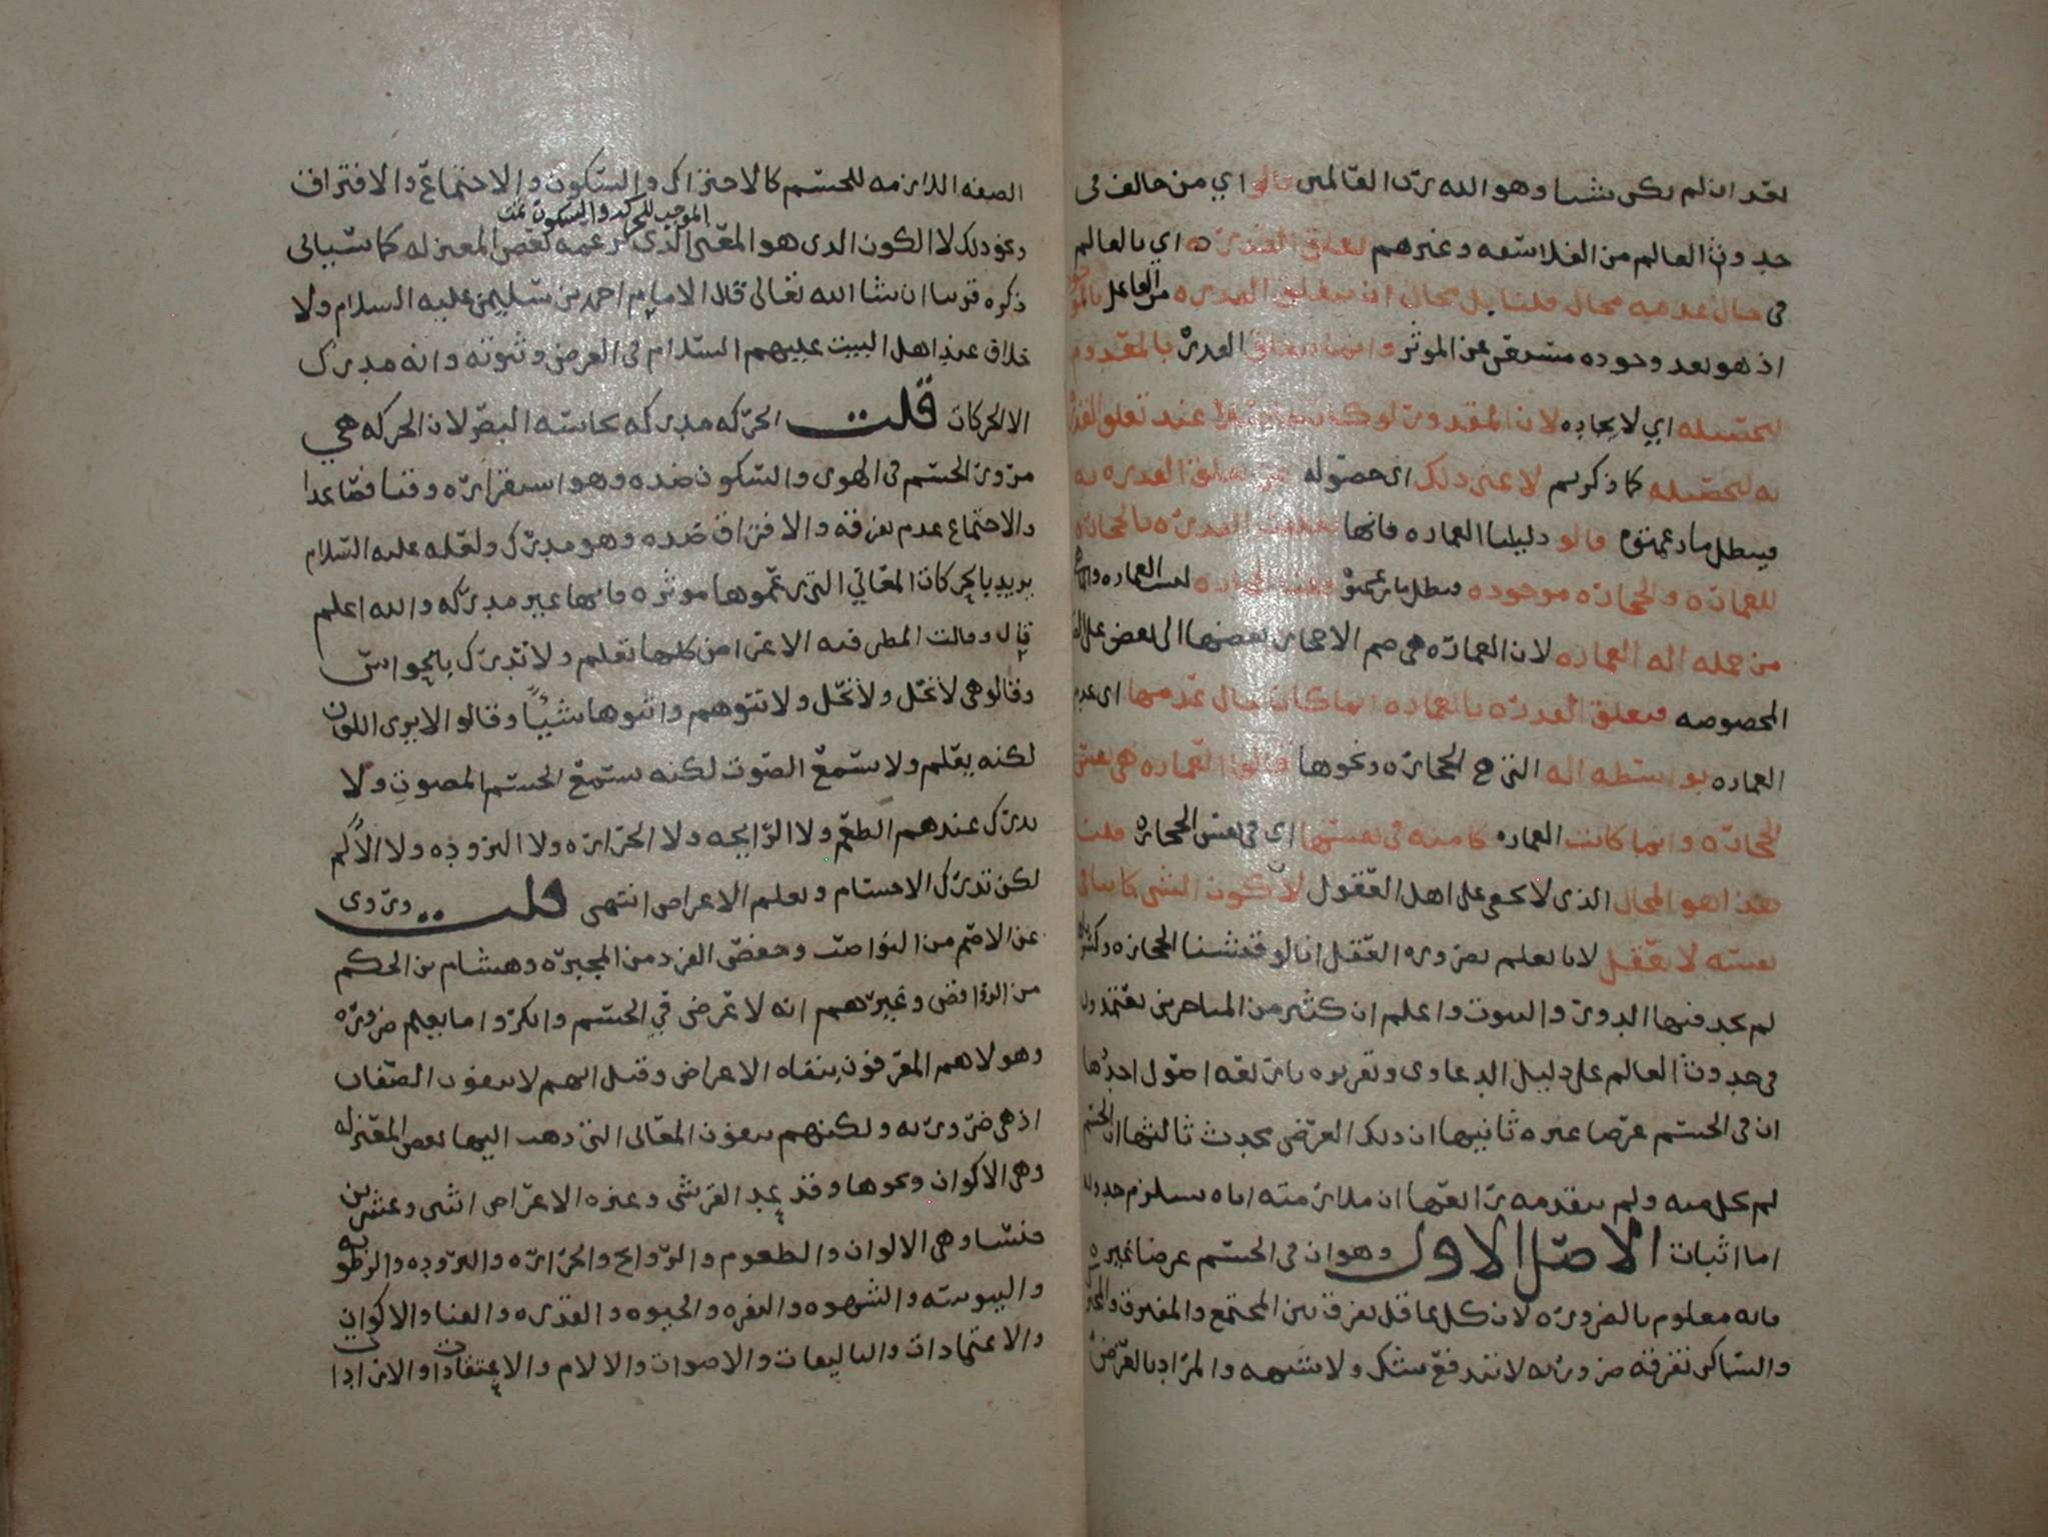 بعد ان لم يكن شيا وهو الله رب العالمين قالوا اي من خالف في
حدوث العالم من الفلاسفه وغيرهم تعلق القدره به اي بالعالم
في حال عدمه محال قلنا بل محال ان تتعلق القدره من الفاعل
اذ هو بعد وجوده مستغن عن الموثر وانما تتعلق القدره بالمقدور
لتحصيله اي لايجاده لان المقدور لو كان عند تعلق القدره
به لتحصيله كما ذكرتم لاغنى ذلك اي حصوله عن تعلق القدره به
فيبطل ما زعمتوه قالوا دليلنا العماره فانها تعلقت القدره بالحجاره
للعماره والحجاره موجوده فبطل ما زعمتم قلنا الحجاره ليست العماره
من جمله اله العماره لان العماره هي ضم الاحجار بعضها الى بعض على
المخصوصه فتعلق القدره بالعماره انما كان حال عدمها اي عدم
العماره بواسطه اله التي هي الحجاره ونحوها قالوا العماره هي نفس
الحجاره وانما كانت العماره كامنه في نفسها اي في نفس الحجاره قلنا
هذا هو المحال الذي لا يخفى على اهل العقول لان كون الشي كامنا في
نفسه لا يعقل لانا نعلم بضروره العقل انا لو فتشنا الحجاره
لم نجد فيها الدور والبيوت واعلم ان كثير من المتاخرين يعتمدون
في حدوث العالم على دليل الدعاوى وتقريره باربعه اصول احدها
ان في الجسم عرضا غيره ثانيها ان ذلك العرض محدث ثالثها ان الجسم
لم يخل منه ولم يتقدمه رابعها ان ملازمته اياه يستلزم حدوثه
اما اثبات الاصل الاول وهو ان في الجسم عرضا غيره
فانه معلوم بالضروره لان كل عاقل يفرق بين المجتمع والمفترق
والساكن تفرقه ضروريه لا تندفع بشك ولا شبهه والمراد بالعرض
الصفه اللازمه للجسم كالاحتراك والسكون والاجتماع والافتراق
الموجب للحركه والسكون
ونحو ذلك لا الكون الذي هو المعنى الذي زعمه بعض المعتزله كما سياتي
ذكره قريبا ان شا الله تعالى قال الامام احمد بن سليمن عليه السلام ولا
خلاف عند اهل البيت عليهم السلام في العرض وثبوته وانه مدرك
الا الحركات قلت الحركه مدركه بحاسه البصر لان الحركه هي
مرور الجسم في الهوى والسكون ضده وهو استقراره وقتا فصاعدا
والاجتماع عدم تفرقه والافتراق ضده وهو مدرك ولعله عليه السلام
يريد بالحركات المعاني التي زعموها موثره فانها غير مدركه والله اعلم
قال وقالت المطرفيه الاعراض كلها تعلم ولا تدرك بالحواس
وقالو هي لا تحل ولا تحل ولا تتوهم واثبتوها شيئا وقالو الا يرى اللون
لكنه يعلم ولا يسمع الصوت لكنه يسمع الجسم المصوت ولا
يدرك عندهم الطعم ولا الرايحه ولا الحراره ولا البروده ولا الالم
لكن تدرك الاجسام وتعلم الاعراض انتهى قلت وروى
عن الاصم من النواصب وحفص الفرد من المجبره وهشام بن الحكم
من الروافض وغيرهم انه لا عرض في الجسم وانكروا ما يعلم ضروره
وهولا هم المعرفون بنفاه الاعراض وقيل انهم لا ينفون الصفات
اذ هي ضروريه ولكنهم ينفون المعاني التي ذهب اليها بعض المعتزله
وهي الاكوان ونحوها وقد عد القرشي وغيره الاعراض اثني وعشرين
جنسا وهي الالوان والطعوم والروايح والحراره والبروده والرطوبه
واليبوسه والشهوه والنفره والحيوه والقدره والفنا والاكوان
والاعتمادات والتاليفات والاصوات والالام والاعتقادات والارادات